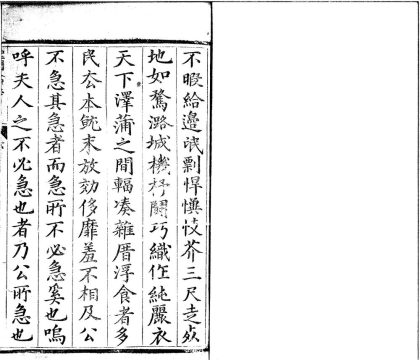 不暇給邉氓剽悍慎忮芥三尺走𣦸
地如騖潞城機杼鬪巧織作純麗衣
天下澤蒲之間輻凑雜厝浮食者多
民去本就末放効侈靡羞不相及公
不急其急者而急所不必急奚也嗚
呼夫人之不必急也者乃公所急也